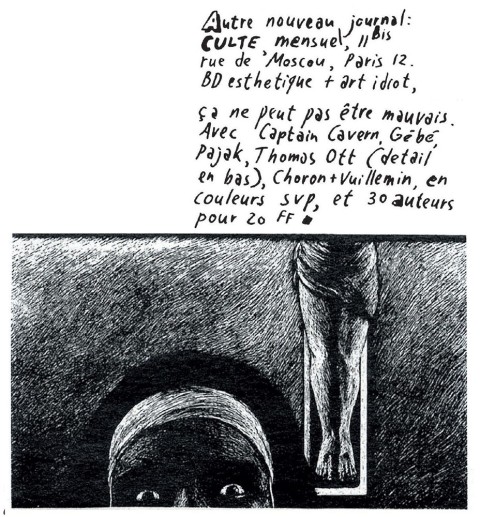 Autre nouveau journal:
CULTE, mensuel, 11 Bis
rue de Moscou, Paris 12.
BD esthetique + art idiot,
ça ne peut pas être mauvais.
Avec Captain Cavern, Gébé,
Pajak, Thomas Ott (detail
en bas), Choron+Vuillemin, en
couleurs svp, et 30 auteurs
pour 20 FF